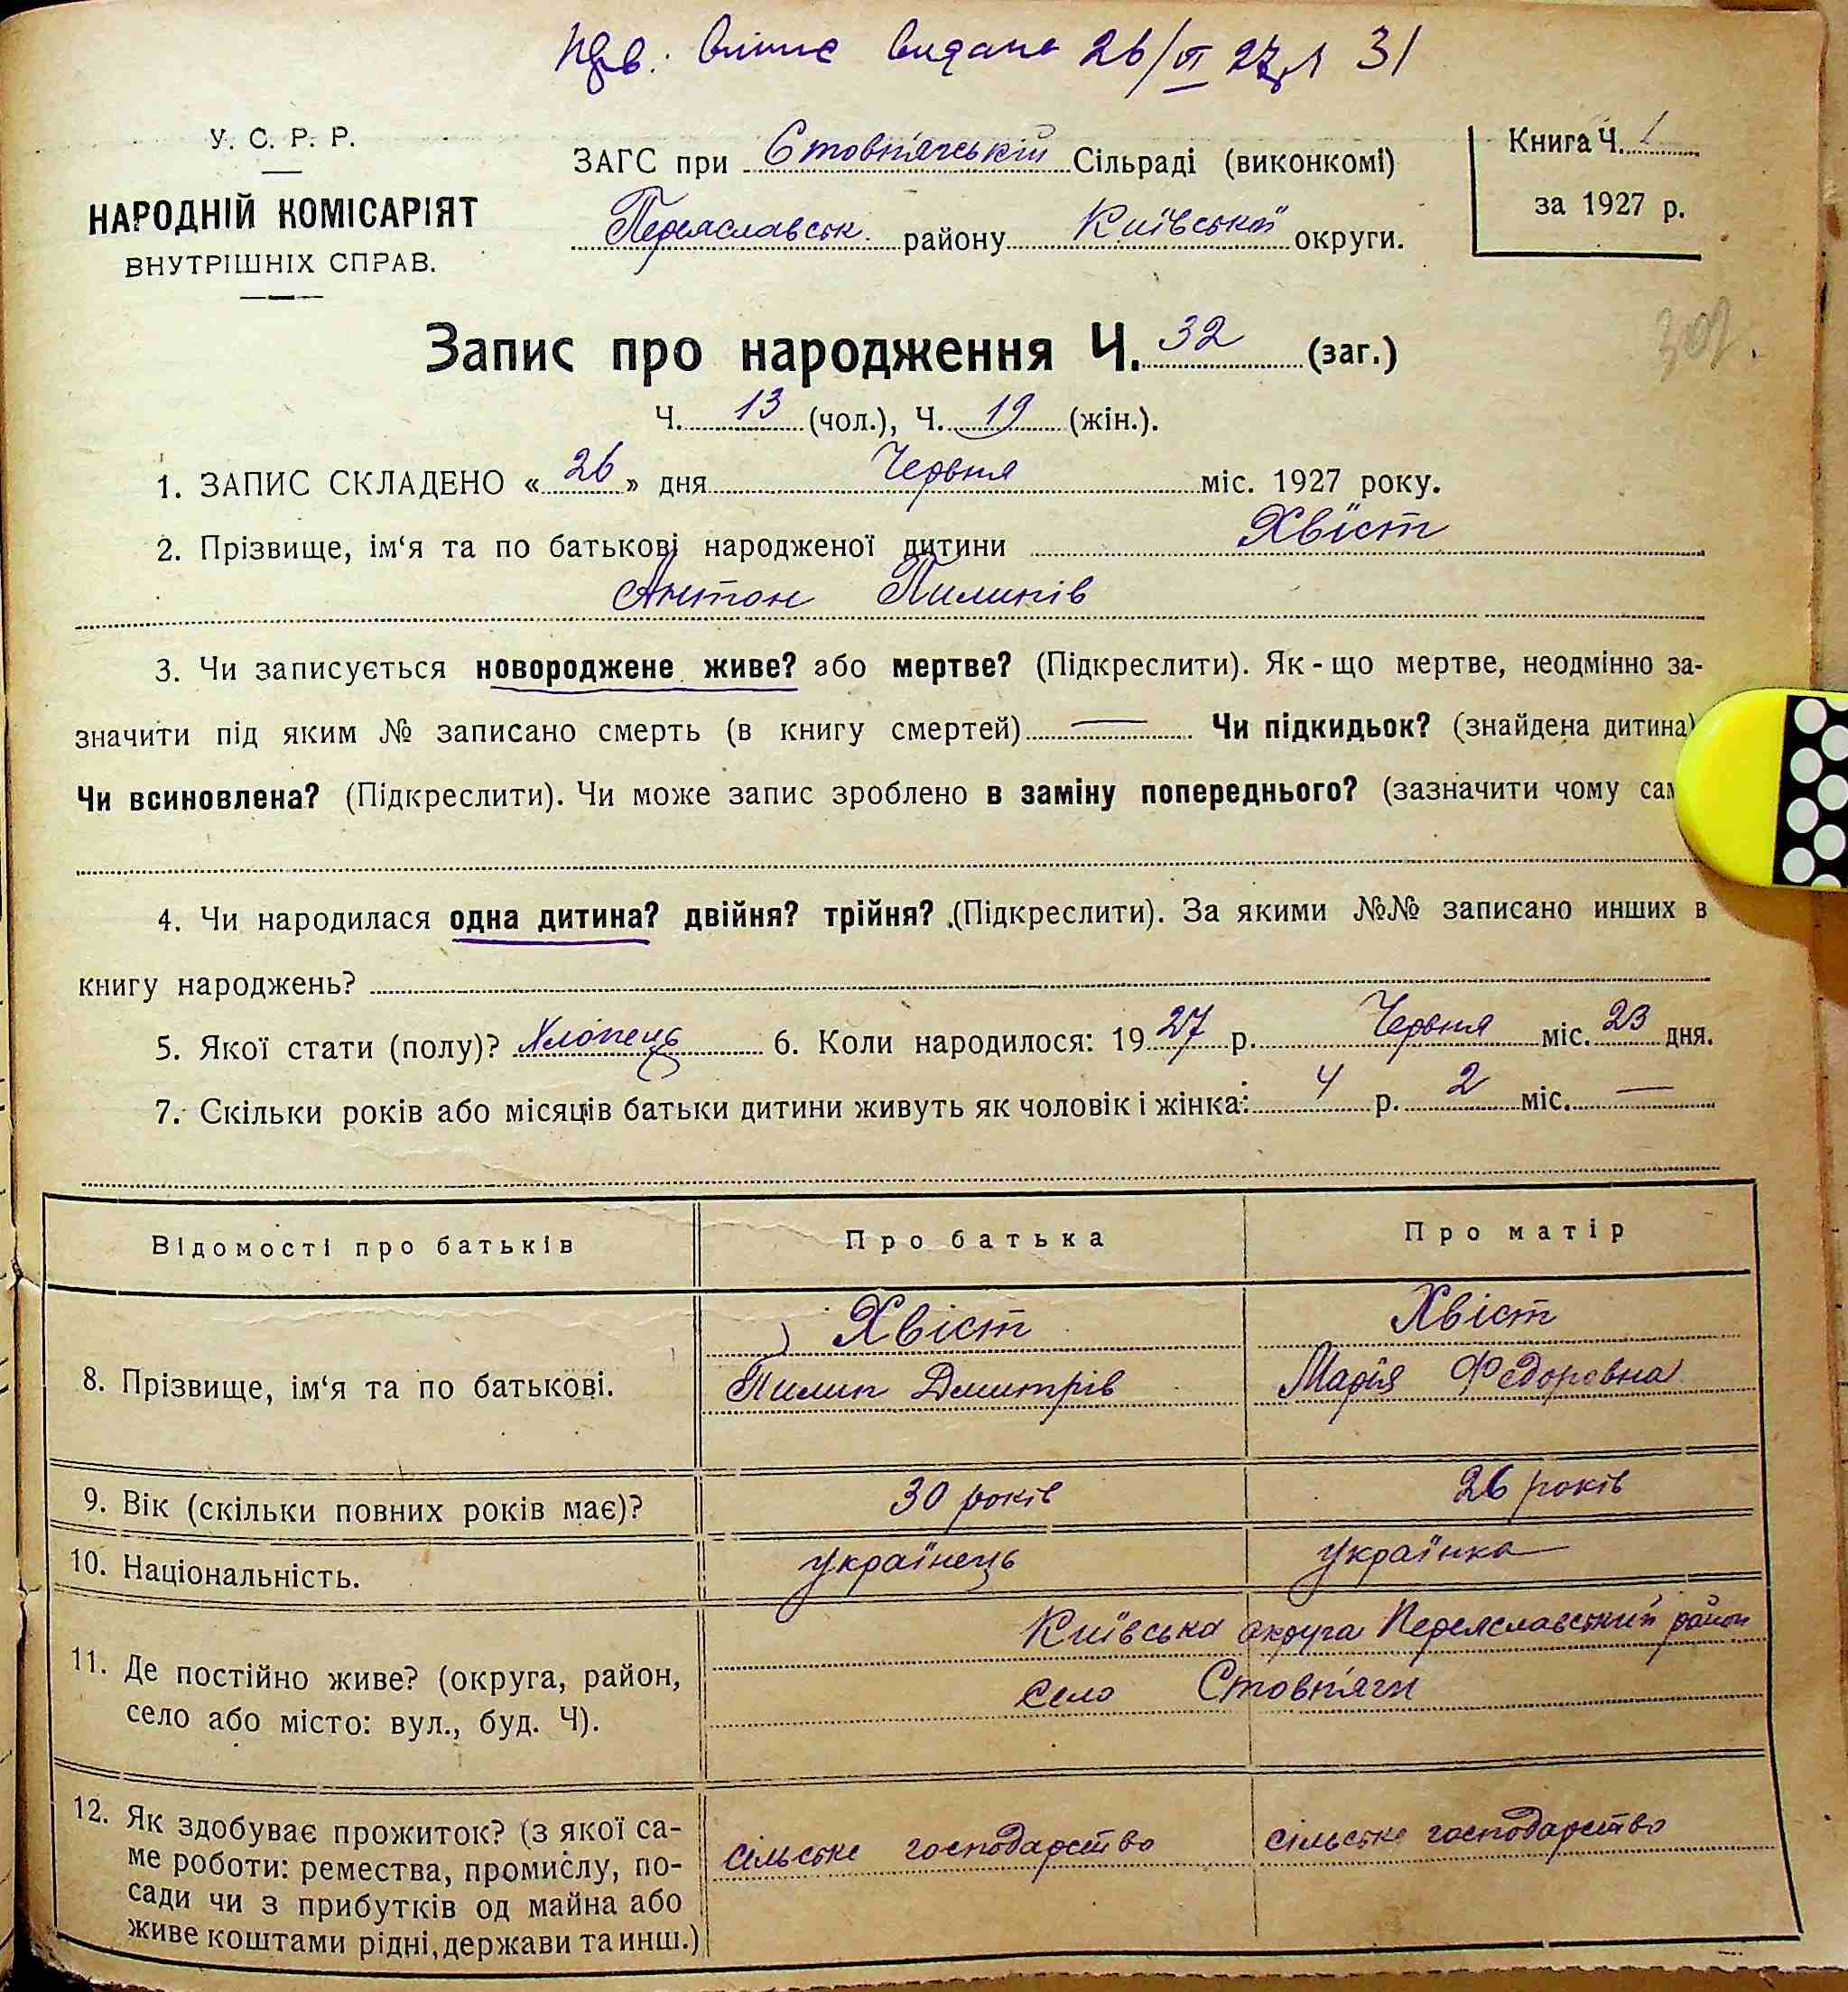 видана 26/VI 27 р 31
У. С. Р. Р.
НАРОДНІЙ КОМІСАРІЯТ
ВНУТРІШНІХ СПРАВ.
ЗАГС при Стовпячській Сільраді (виконкомі)
Переяславськ. району Київської округи.
Книга Ч. 1
за 1927 р.
302.
Запис про народження Ч. 32 (заг.)
Ч. 13 (чол.), Ч. 19 (жін.).
1. ЗАПИС СКЛАДЕНО «26» дня Червня міс. 1927 року.
2. Прізвище, ім‘я та по батькові народженої дитини Хвіст
Антон Пилипів
3. Чи записується новороджене живе? або мертве? (Підкреслити). Як-що мертве, неодмінно за-
значити під яким № записано смерть (в книгу смертей) — Чи підкидьок? (знайдена дитина)
Чи всиновлена? (Підкреслити). Чи може запис зроблено в заміну попереднього? (зазначити чому сам
4. Чи народилася одна дитина? двійня? трійня? (Підкреслити). За якими №№ записано инших в
книгу народжень?
5. Якої стати (полу)? Хлопець 6. Коли народилося: 1927 р. Червня міс. 23 дня.
7. Скільки років або місяців батьки дитини живуть як чоловік і жінка: 4 р. 2 міс. —
Відомості про батьків Про батька Про матір
8. Прізвище, ім‘я та по батькові.
Хвіст
Пилип Дмитрів
Хвіст
Марія Федоровна
9. Вік (скільки повних років має)? 30 років 26 років
10. Національність. українець українка
11. Де постійно живе? (округа, район,
село або місто: вул., буд. Ч).
Київська округа Переяславський район
село Стовп'яги
12. Як здобуває прожиток? (з якої са-
ме роботи: ремества, промислу, по-
сади чи з прибутків од майна або
живе коштами рідні, держави та инш.)
сільське господарство
сільське господарство